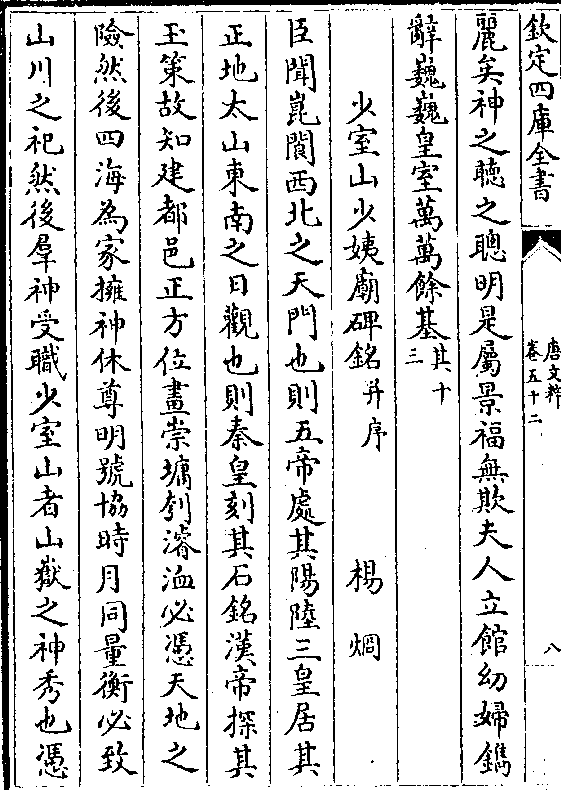 欽定四庫全書
唐文粹
卷五十二
八
麗矣神之聽之聰明是屬景福無欺夫人立館幼婦鐫
辭巍巍皇室萬萬餘基其十三
少室山少姨廟碑銘并序 楊烱
臣聞崑閬西北之天門也則五帝處其陽陸三皇居其
正地太山東南之日觀也則秦皇刻其石銘漢帝探其
玉策故知建都邑正方位畫崇墉刳濬洫必憑天地之
險然後四海為家擁神休尊明號協時月同量衡必致
山川之祀然後羣神受職少室山者山嶽之神秀也憑